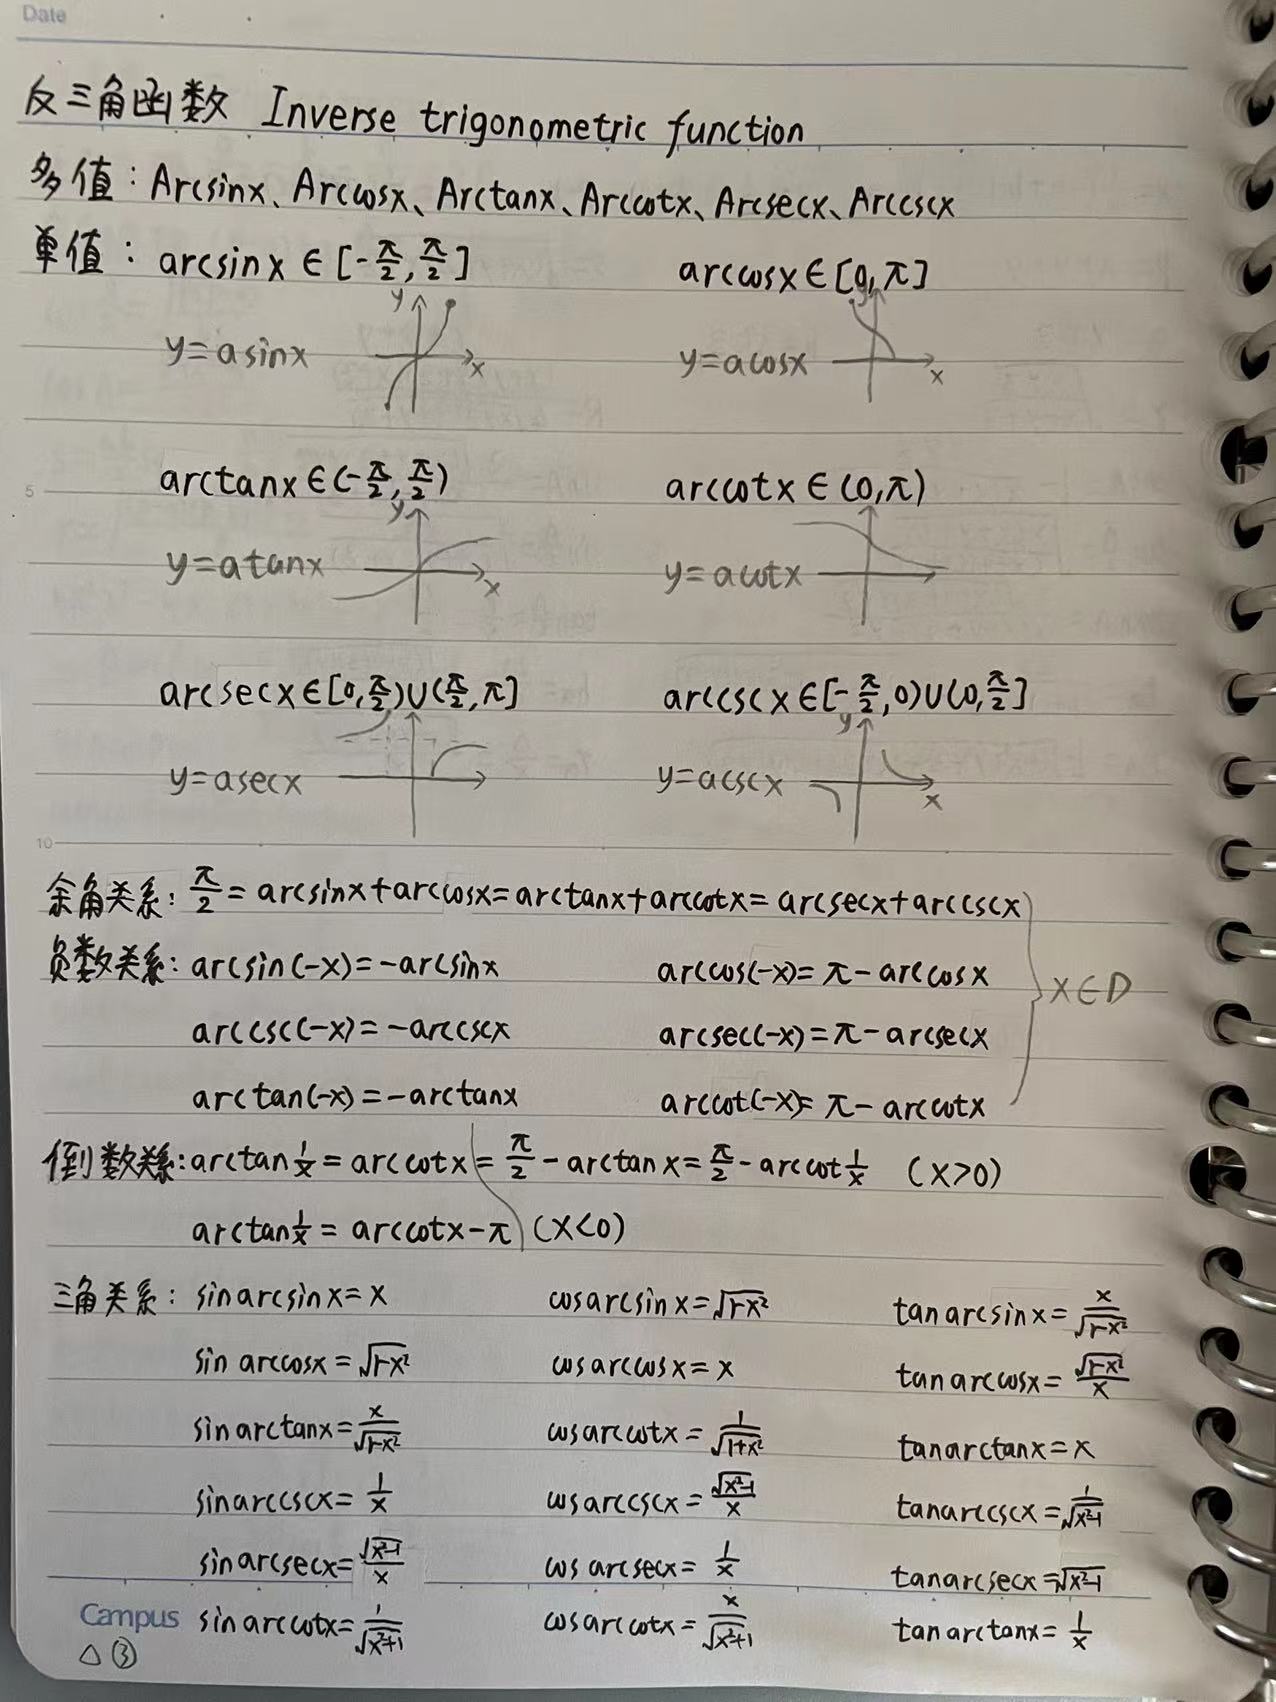 Date
反三角函数 Inverse trigonometric function
多值：Arcsinx、Arccosx、Arctanx、Arccotx、Arcsecx、Arccscx
单值：arcsinx∈[-π/2,π/2] arccosx∈[0,π]
y x y x
y=asinx y=acosx
5 arctanx∈(-π/2,π/2) arccotx∈(0,π)
y x
y=atanx y=acotx
arcsecx∈[0,π/2)∪(π/2,π] arccscx∈[-π/2,0)∪(0,π/2]
y x
y=asecx y=acscx
10
余角关系：π/2=arcsinx+arccosx=arctanx+arccotx=arcsecx+arccscx
负数关系：arcsin(-x)=-arcsinx arccos(-x)=π-arccosx x∈D
arccsc(-x)=-arccscx arcsec(-x)=π-arcsecx
arctan(-x)=-arctanx arccot(-x)=π-arccotx
倒数关系：arctan1/x=arccotx=π/2-arctanx=π/2-arccot1/x (x>0)
arctan1/x=arccotx-π (x<0)
三角关系：sinarcsinx=x cosarcsinx=√1-x² tanarcsinx=x/√1-x²
sinarccosx=√1-x² cosarccosx=x tanarccosx=√1-x²/x
sinarctanx=x/√1-x² cosarccotx=1/√1+x² tanarctanx=x
sinarccscx=1/x cosarccscx=√x²-1/x tanarccscx=1/√x²-1
sinarcsecx=√x²-1/x cosarcsecx=1/x tanarcsecx=√x²-1
Campus sinarccotx=1/√x²+1 cosarccotx=x/√x²+1 tanarctanx=1/x
△③